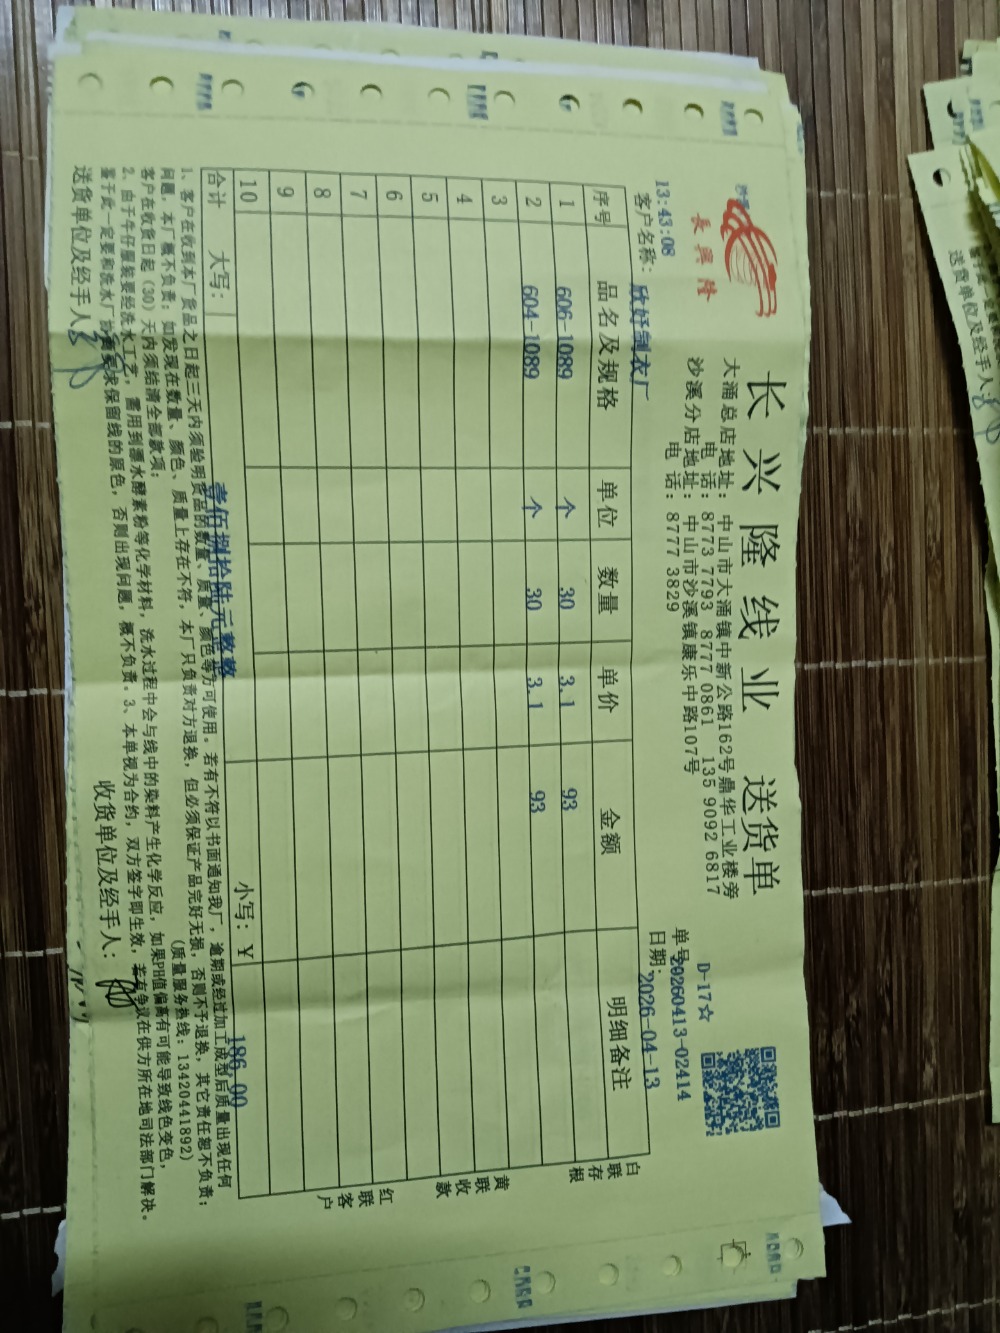 長興隆
长兴隆线业 送货单
大涌总店地址：中山市大涌镇中新公路162号鼎华工业楼旁
电话：8773 7793 8777 0861 135 9092 6817
沙溪分店地址：中山市沙溪镇康乐中路107号
电话：8777 3829
D-17☆
单号20260413-02414
日期：2026-04-13
13:43:08
客户名称：欣妤制衣厂
序号 品名及规格 单位 数量 单价 金额 明细备注
1 606-1089 个 30 3.1 93
2 604-1089 个 30 3.1 93
3
4
5
6
7
8
9
10
合计 大写：壹佰捌拾陆元整 小写：￥186.00
白联存根
黄联收款
红联客户
1、客户在收到本厂货品之日起三天内须验明货品的数量、质量、颜色等方可使用。若有不符以书面通知我厂，逾期或经过加工成型后质量出现任何
问题，本厂概不负责；如发现在数量、颜色、质量上存在不符，本厂只负责对方退换，但必须保证产品完好无损，否则不予退换，其它责任恕不负责；
客户在收货日起（30）天内须结清全部款项； （质量服务热线：13420441892）
2、由于牛仔服装要经洗水工艺，需用到漂水酵素粉等化学材料，洗水过程中会与线中的染料产生化学反应，如果PH值偏高有可能导致线色变色，
鉴于此一定要和洗水厂 要求保留线的原色，否则出现问题，概不负责。3、本单视为合约，双方签字即生效，若有争议在供方所在地司法部门解决。
送货单位及经手人： 收货单位及经手人：
送货单位及经手人：